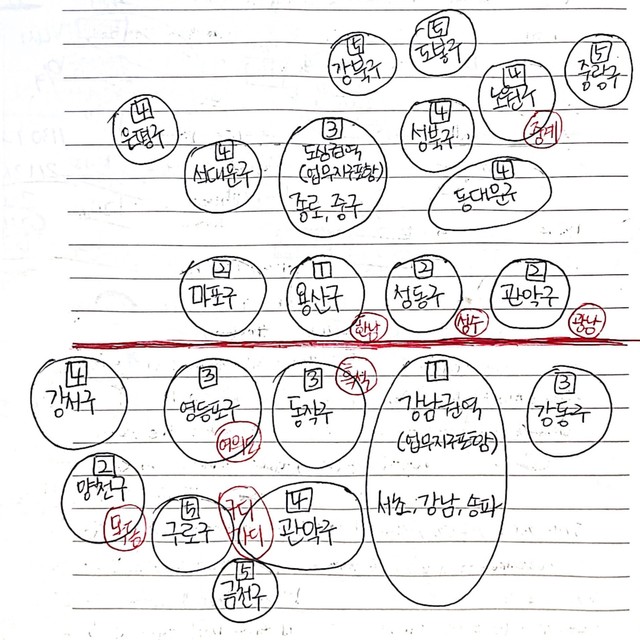 5
강북구
5
도봉구
4
노원구
중계
5
중랑구
4
은평구
4
서대문구
3
도심권역
(업무지구포함)
종로, 중구
4
성북구
4
동대문구
2
마포구
1
용산구
한남
2
성동구
성수
2
관악구
광남
4
강서구
3
영등포구
여의도
3
동작구
흑석
1
강남권역
(업무지구포함)
서초, 강남, 송파
3
강동구
2
양천구
목동
5
구로구
구디
가디
4
관악구
5
금천구